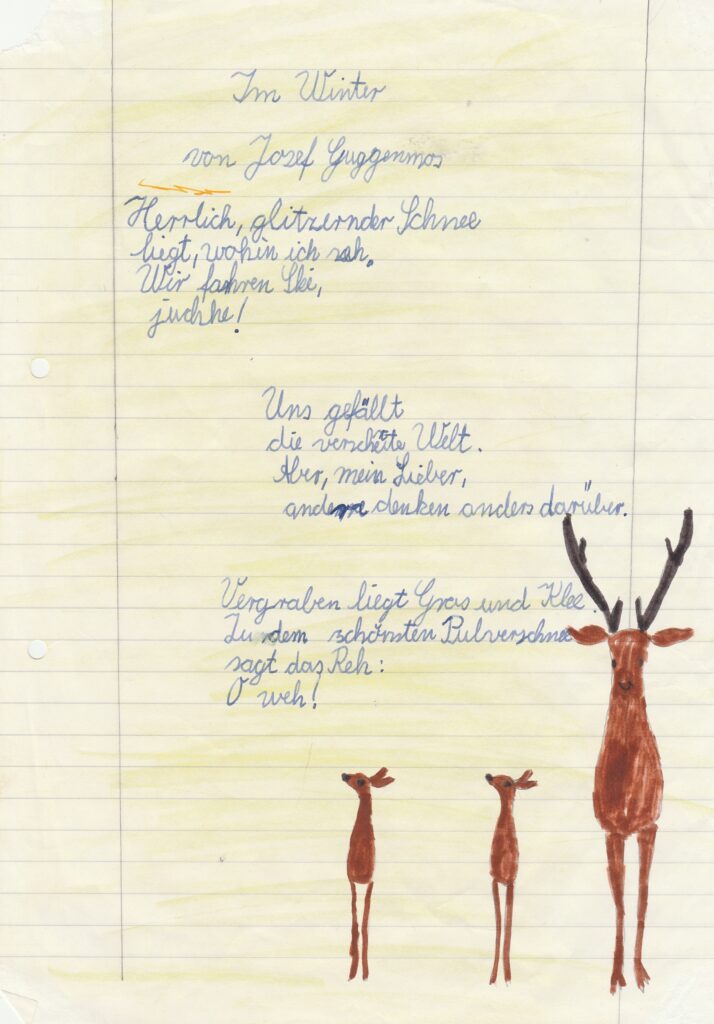 Im Winter
von Josef Guggenmos
Herrlich, glitzernder Schnee
liegt, wohin ich seh.
Wir fahren Ski,
juchhe!
Uns gefällt
die verscheite Welt.
Aber, mein Lieber,
andere denken anders darüber.
Vergraben liegt Gras und Klee.
Zu dem schönsten Pulverschnee
sagt das Reh:
O weh!